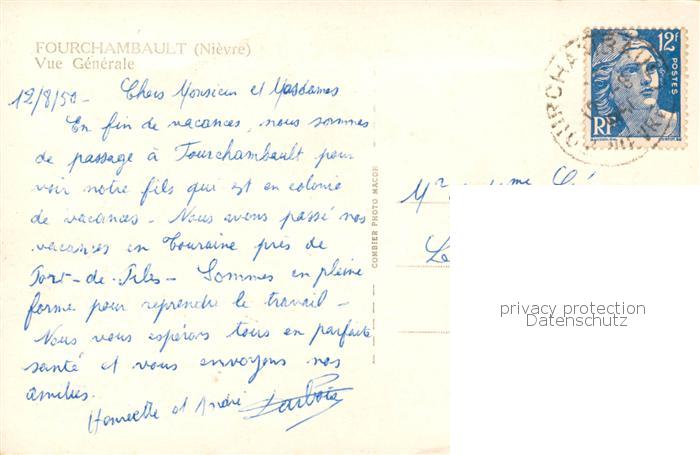 FOURCHAMBAULT (Nièvre)
Vue Générale
12/8/50 - Chers Monsieur et Mesdames
En fin de vacances, nous sommes
de passage à Fourchambault pour
voir notre fils qui est en colonie
de vacances - Nous avons passé nos
vacances en Touraine près de
Port-de-Piles - Sommes en pleine
forme pour reprendre le travail -
Nous vous espérons tous en parfaite
santé et vous envoyons nos
amitiés.
Henriette et André
COMBIER PHOTO MACON
12F
POSTES
RF
privacy protection
Datenschutz